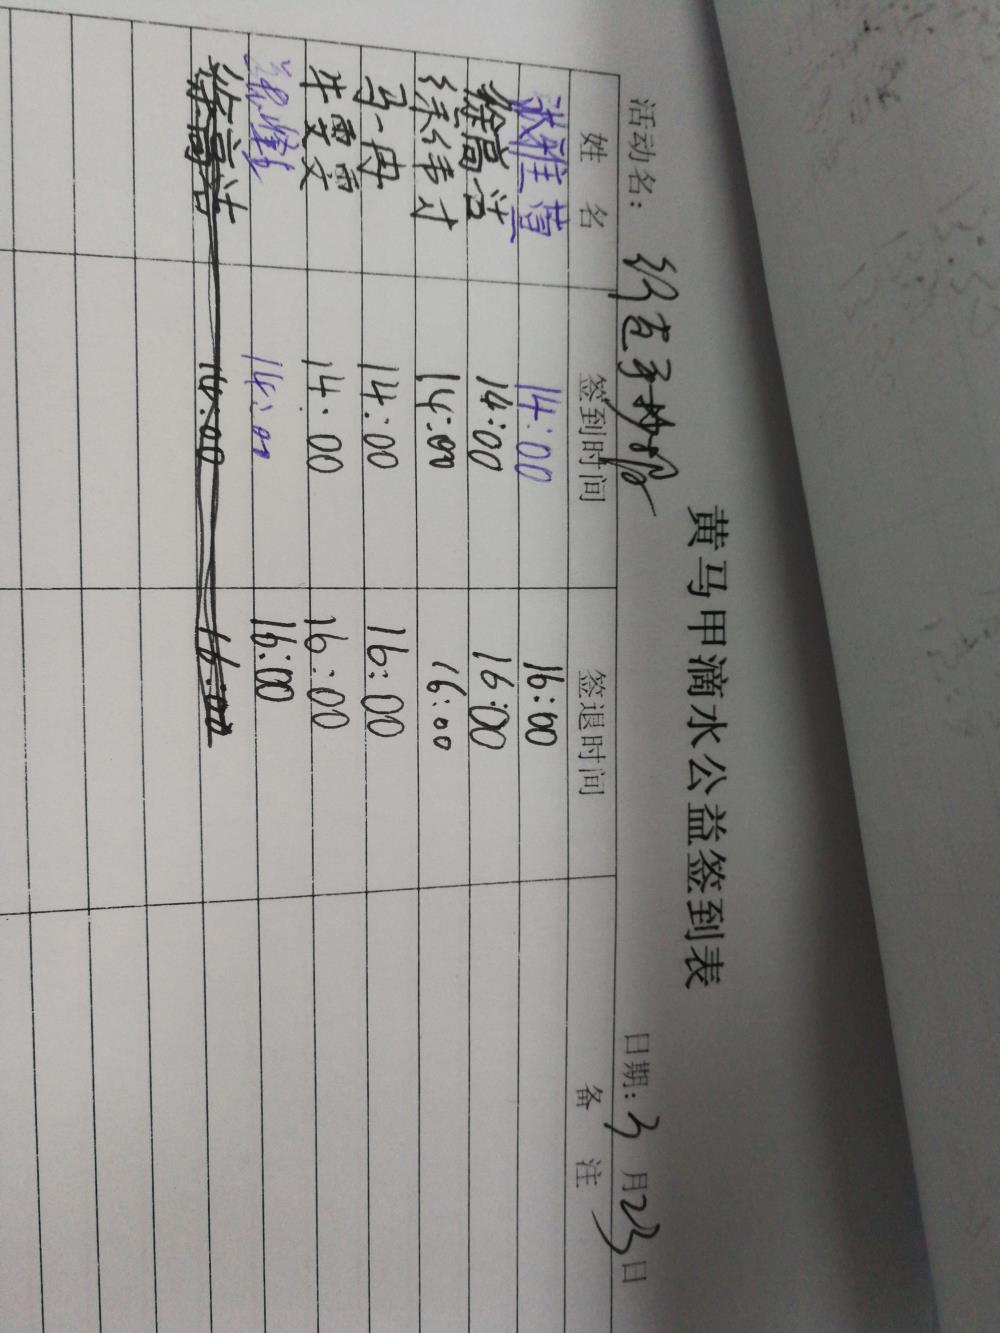 黄马甲滴水公益签到表
活动名: 日期: 3月23日
姓 名 签到时间 签退时间 备 注
雅萱 14:00 16:00
徐高洁 14:00 16:00
14:00 16:00
马冉 14:00 16:00
14:00 16:00
14:00 16:00
徐高洁 14:00 16:00